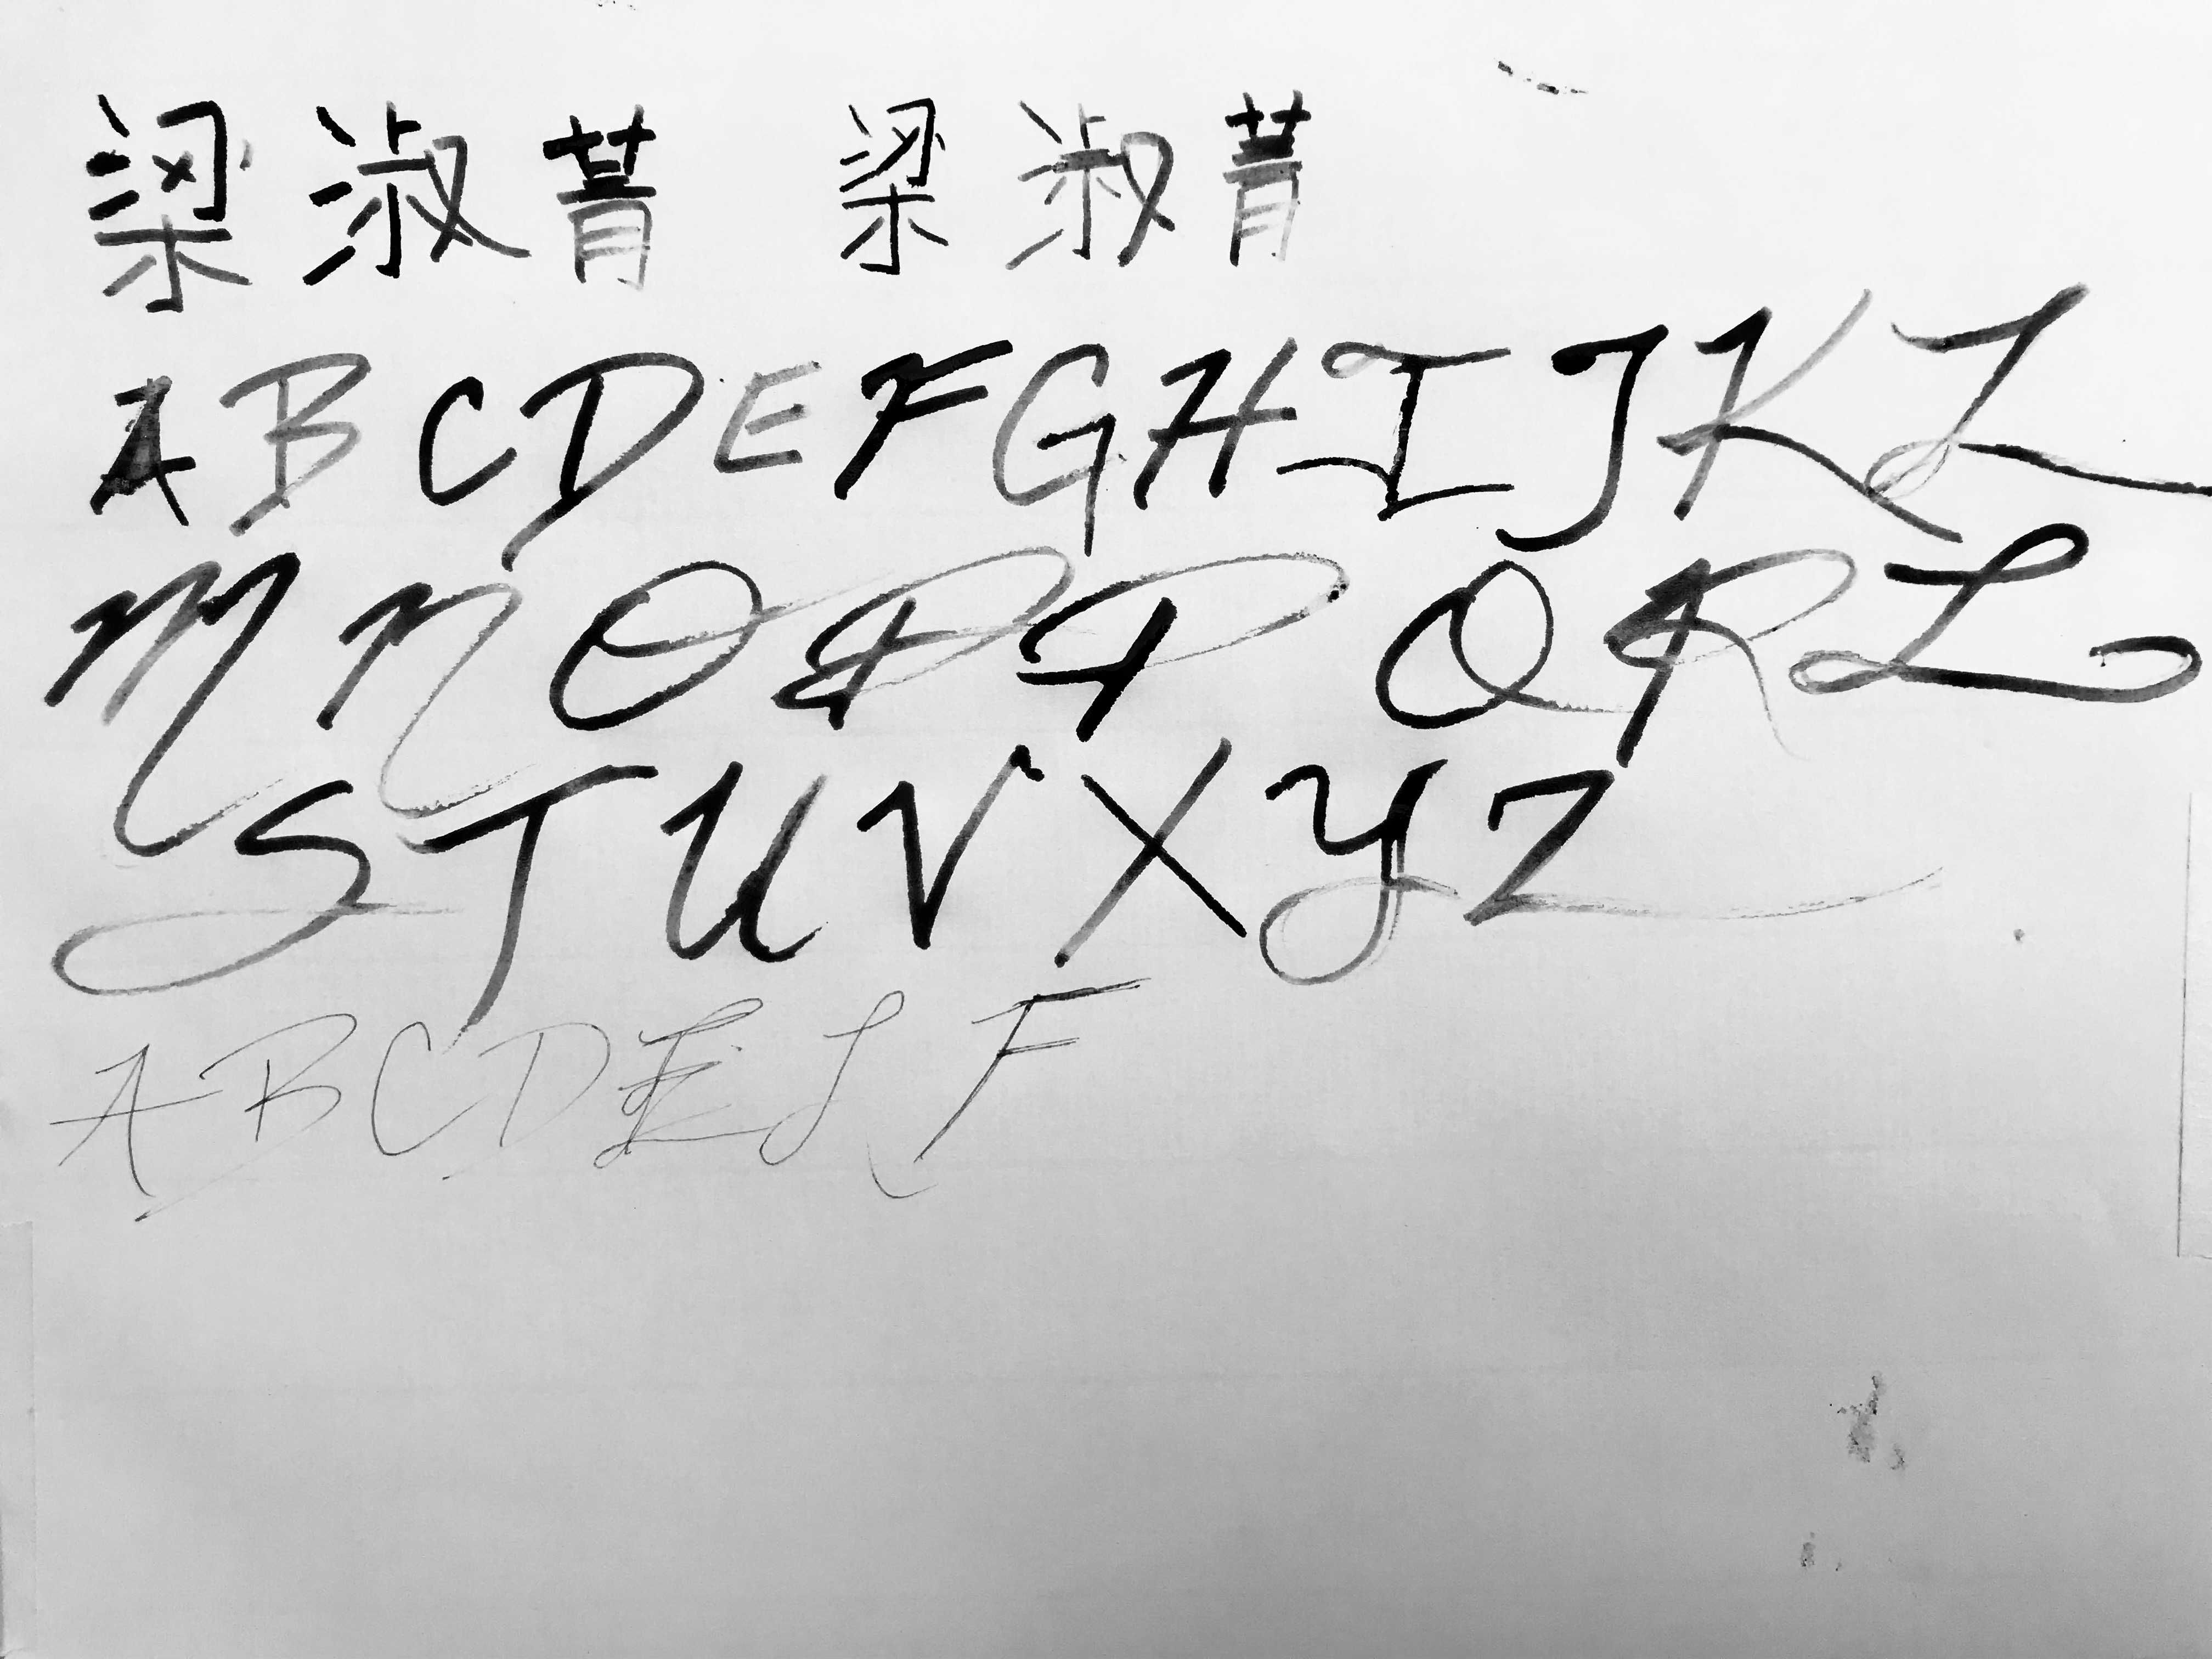 梁淑菁 梁淑菁
A B C D E F G H I J K L
M N O P P Q R L
S T U V X Y Z
A B C D E L F